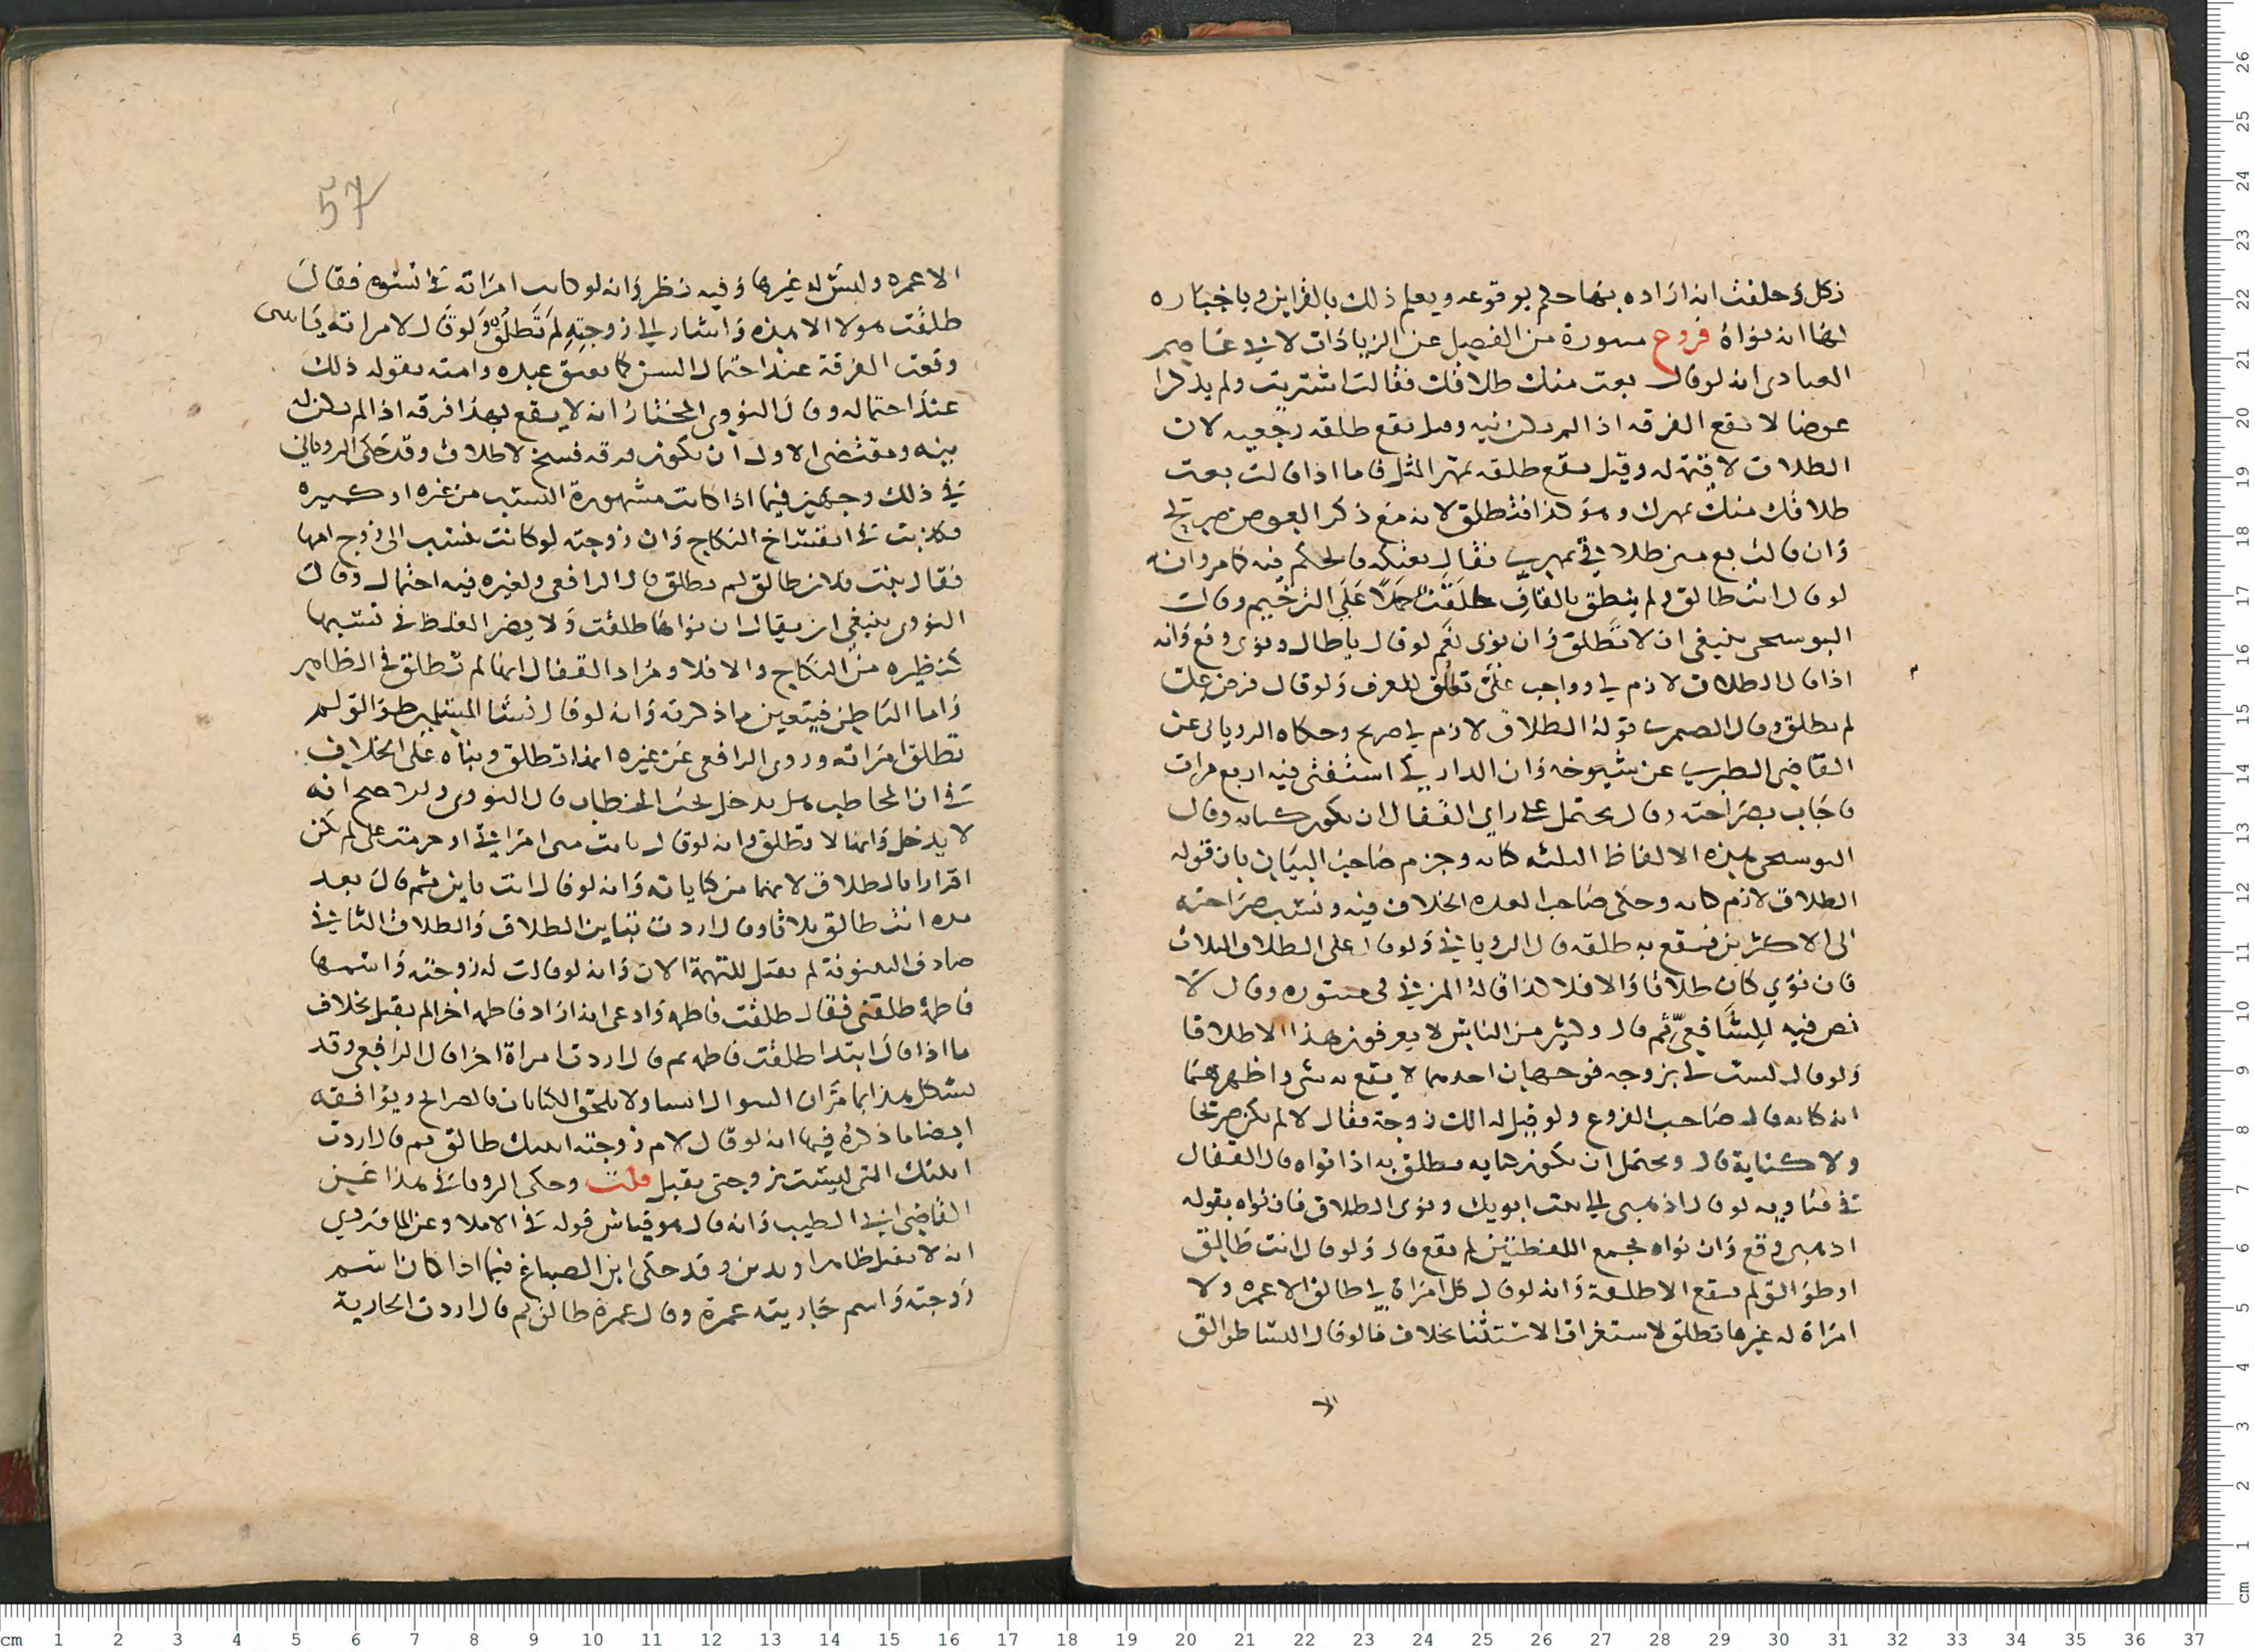 ذكل وحلفت انه اراده بها حكم بوقوعه ويعلم ذلك بالقراين وباخباره
لها انه نواه فروع منثورة من الفصيل عن الزيادات لابي عاصم
العبادي انه لو قال بعت منك طلاقك فقالت اشتريت ولم يذكرا
عوضا لا تقع الفرقه اذا لم يكن نيه وقيل تقع طلقه رجعيه لان
الطلاق لا قيمة له وقيل يقع طلقه بمهر المثل فاما اذا قالت بعت
طلاقك منك بمهرك وهو كذا فتطلق لانه مع ذكر العوض صريح
وان قالت بع مني طلاقي بمهري فقال بعتكه فالحكم فيه كما مر وانه
لو قال انت طالق ولم ينطق بالقاف طلقت حملا على الترخيم وقال
البوسنجي ينبغي ان لا تطلق وان نوى نعم لو قال يا طال ونوى وقع وانه
اذا قال الطلاق لازم لي وواجب علي تطلق للعرف ولو قال فرض علي
لم تطلق وقال الصمري قوله الطلاق لازم لي صريح وحكاه الروياني عن
القاضي الطبري عن شيوخه وان الداركي استفتي فيه اربع مرات
فاجاب بصراحته وقال يحتمل على راي القفال ان يكون كنايه وقال
البوسنجي هذه الالفاظ الثلثه كنايه وجزم صاحب البيان بان قوله
الطلاق لازم كنايه وحكى صاحب العده الخلاف فيه ونسب صراحته
الى الاكثرين فيقع به طلقه قال الروياني ولو قال على الطلاق الثلاث
فان نوى كان طلاقا والا فلا كذا قاله المزني في منثوره وقال لا
نص فيه للشافعي ثم قال وكثير من الناس لا يعرفون هذا الا طلاقا
ولو قال لست لي بزوجه فوجهان احدهما لا يقع به شي واظهرهما
انه كنايه قال صاحب الفروع ولو قيل له الك زوجة فقال لا لم يكن صريحا
ولا كناية قال ويحتمل ان يكون كنايه فتطلق به اذا نواه قال القفال
في فتاويه لو قال اذهبي الى بيت ابويك ونوى الطلاق فان نواه بقوله
اذهبي وقع وان نواه بمجمع اللفظتين لم يقع قال ولو قال انت طالق
او طوالق لم يقع الا طلقة وانه لو قال كل امراة لي طالق الا عمره ولا
امراة له غيرها تطلق لاستغراق الاستثنا بخلاف ما لو قال النسا طوالق
الا
57
الا عمره وليس له غيرها وفيه نظر وانه لو كانت امراته في نسوه فقال
طلقت هولا الا هذه واشار الى زوجته لم تطلق ولو قال لامراته يا بنتي
وقعت الفرقة عند احتمال السن كما يعتق عبده وامته بقوله ذلك
عند احتماله وقال النووي المختار انه لا يقع بهذا فرقه اذا لم يكن له
نيه ومقتضى الاول ان تكون فرقه فسخ لا طلاق وقد حكى الروياني
في ذلك وجهين فيما اذا كانت مشهورة النسب من غيره او كبيره
فكذبت في انفساخ النكاح وان زوجته لو كانت تنسب الى زوج امها
فقال بنت فلان طالق لم تطلق قال الرافعي ولغيره فيه احتمال وقال
النووي ينبغي ان يقال ان نواها طلقت ولا يضر الغلط في نسبها
كنظيره من النكاح والا فلا ومراد القفال انها لم تطلق في الظاهر
واما الباطن فيتعين ما ذكرته وانه لو قال نسا المسلمين طوالق لم
تطلق امراته وروى الرافعي عن غيره انها تطلق وبناه على الخلاف
في ان المخاطب هل يدخل تحت الخطاب قال النووي والاصح انه
لا يدخل وانها لا تطلق وانه لو قال بانت مني امراتي او حرمت علي لم يكن
اقرارا بالطلاق لانهما من كناياته وانه لو قال انت باين ثم قال بعد
مده انت طالق ثلاثا وقال اردت بباين الطلاق والطلاق الثاني
صادف البينونة لم يقبل للتهمة الان وانه لو قالت له زوجته واسمها
فاطمة طلقني فقال طلقت فاطمه وادعى انه اراد فاطمه اخرى لم يقبل بخلاف
ما اذا قال ابتدا طلقت فاطمه ثم قال اردت امراة اخرى قال الرافعي وقد
يشكل هذا بما مر ان السوال لا يلحق الكنايات بالصرايح ويوافقه
ايضا ما ذكره فيها انه لو قال لام زوجته ابنتك طالق ثم قال اردت
ابنتك التي ليست بزوجتي يقبل قلت وحكى الروياني هذا عن
القاضي ابي الطيب وانه قال هو قياس قوله في الاملا وعن الماوردي
انه لا يقبل ظاهرا ويدين وقد حكى ابن الصباغ فيما اذا كان اسم
زوجته واسم جاريته عمرة وقال عمرة طالق ثم قال اردت الجارية